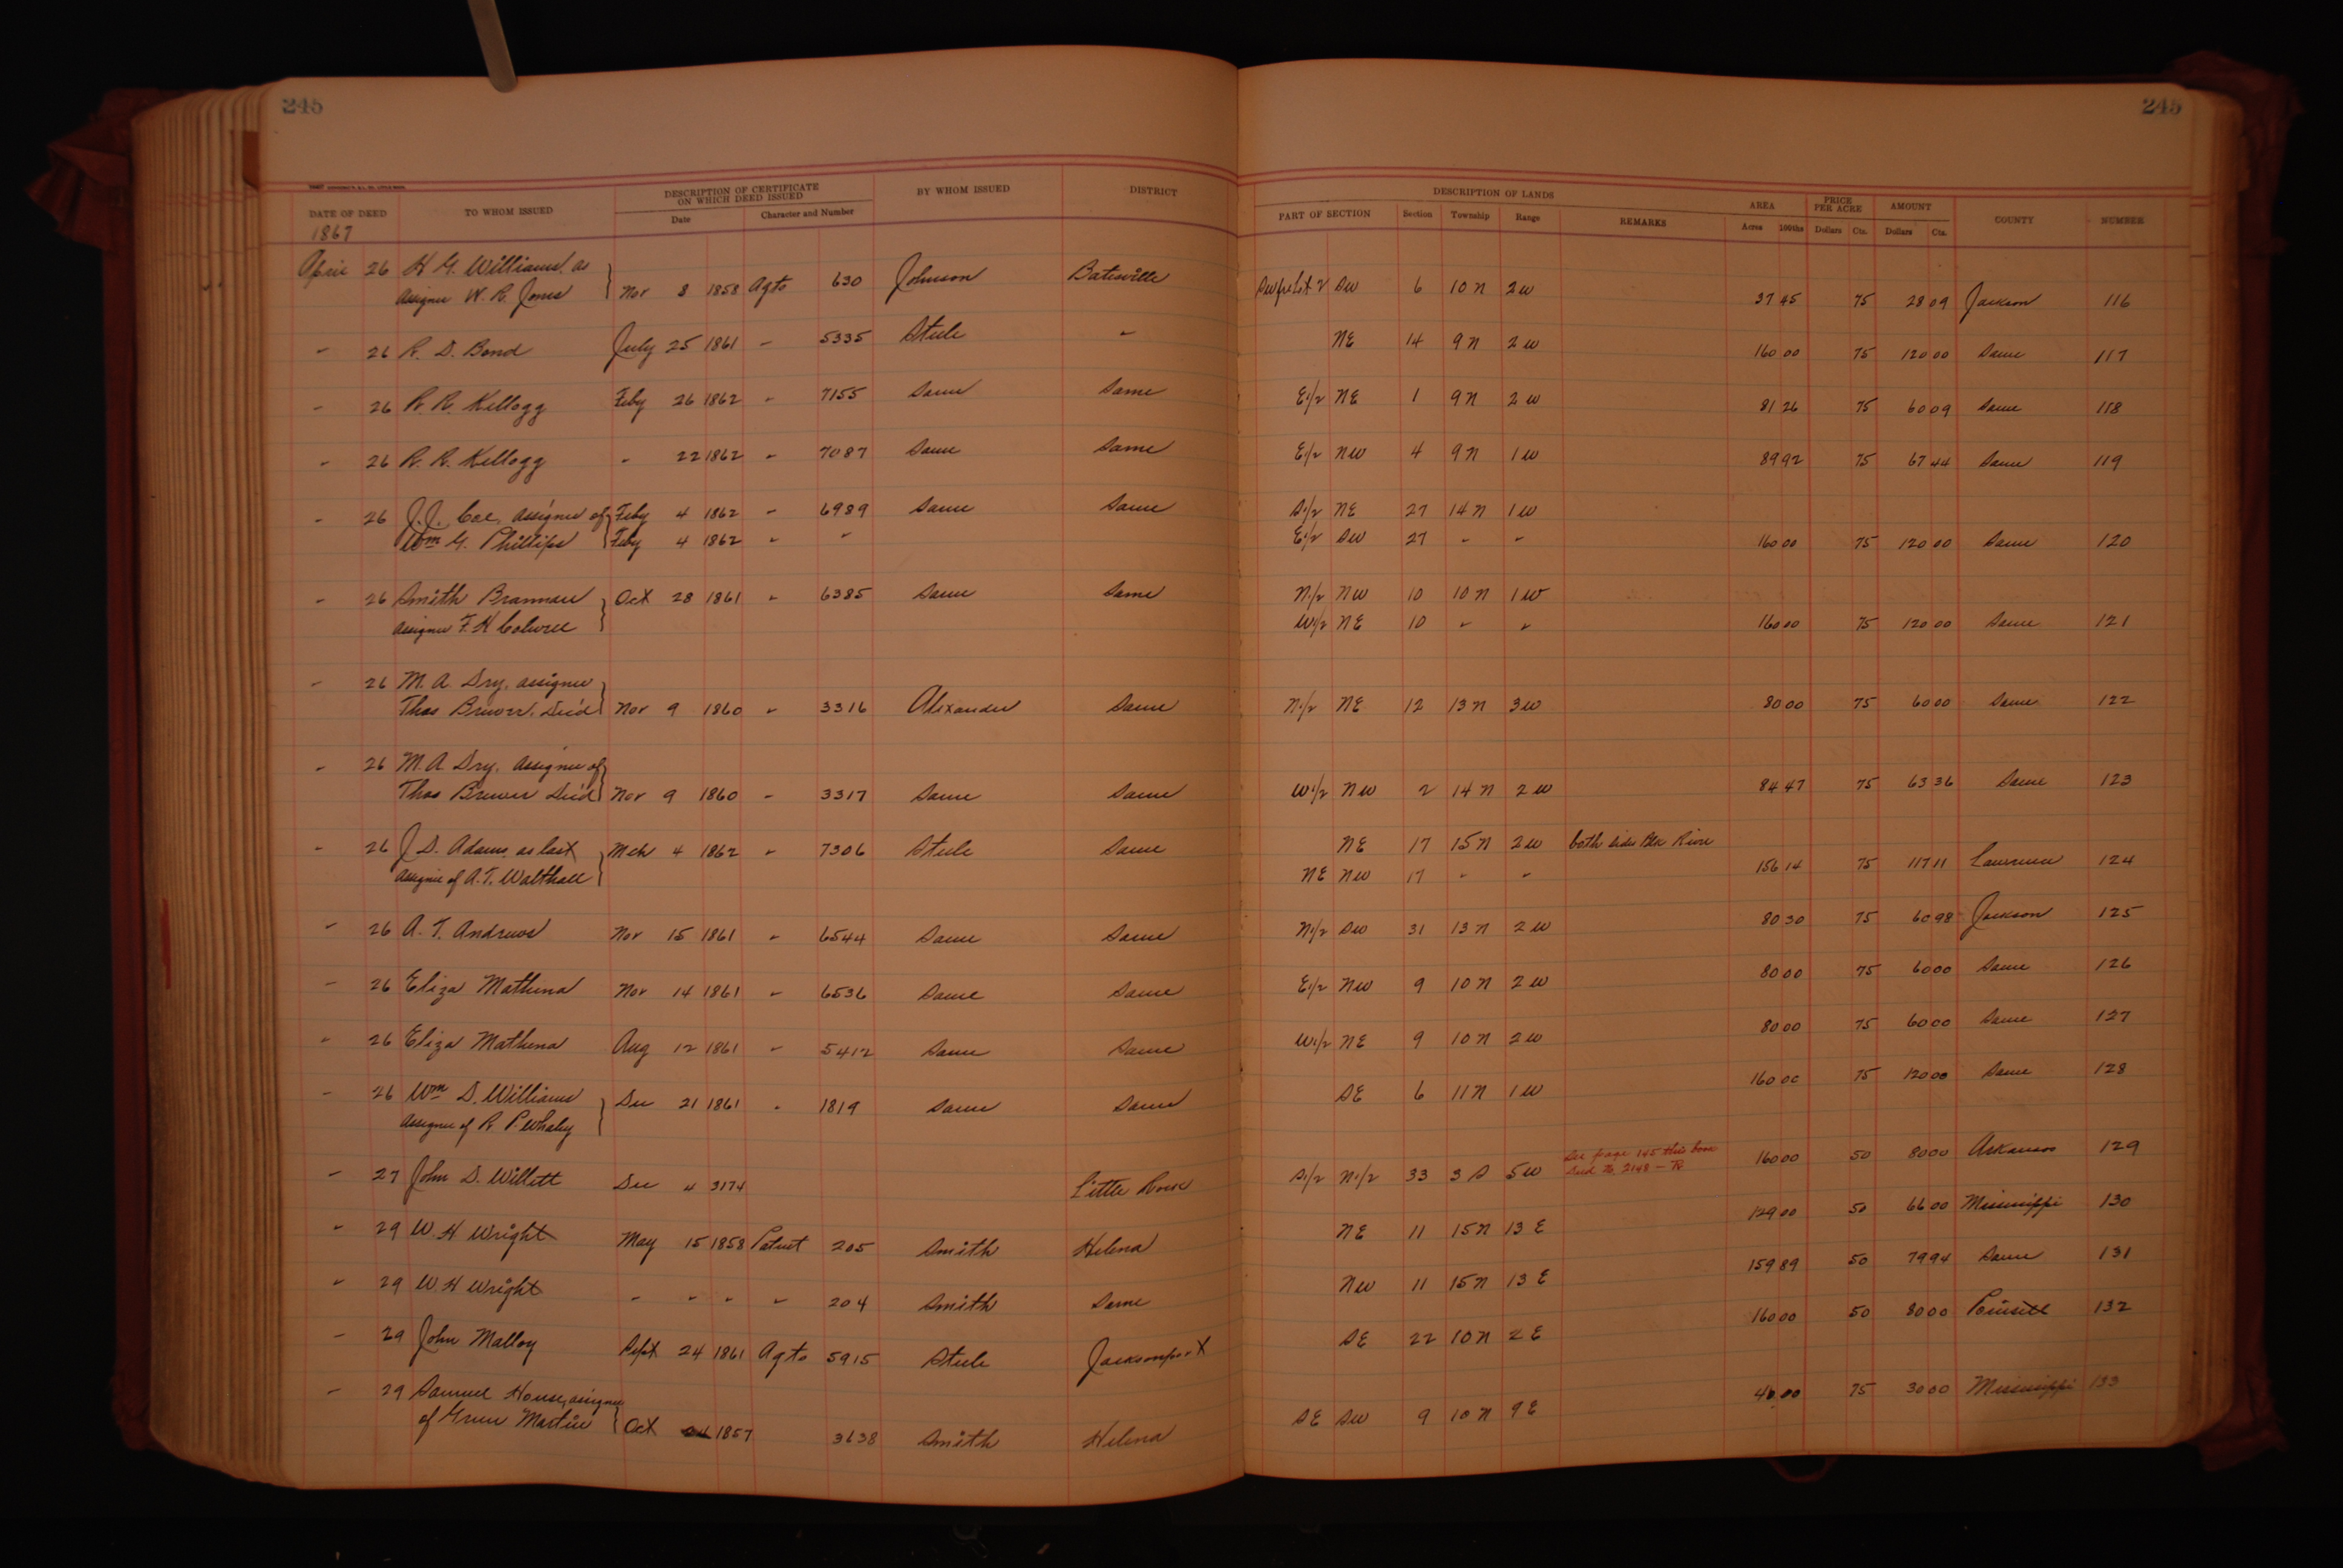 245 245
DATE OF DEED TO WHOM ISSUED DESCRIPTION OF CERTIFICATE ON WHICH DEED ISSUED BY WHOM ISSUED DISTRICT DESCRIPTION OF LANDS AREA PRICE PER ACRE AMOUNT COUNTY NUMBER
Date Character and Number PART OF SECTION Section Township Range REMARKS Acres 100ths Dollars Cts. Dollars Cts.
1867
April 26 H G. Williams, as
assignee W. R. Jones Nov 8 1858 Agts 630 Johnson Batesville Sw 6 10 N 2 W 37 45 75 28 09 Jackson 116
" 26 R. D. Bond July 25 1861 " 5335 Steele " NE 14 9 N 2 W 160 00 75 120 00 Same 117
" 26 R. R. Kellogg Feby 26 1862 " 7155 Same Same E1/2 NE 1 9 N 2 W 81 26 75 60 09 Same 118
" 26 R. R. Kellogg " 22 1862 " 7087 Same Same E1/2 NW 4 9 N 1 W 89 92 75 67 44 Same 119
" 26 J. J. Coe, assignee of Feby 4 1862 " 6989 Same Same S1/2 NE 27 14 N 1 W
Wm G. Phillips Feby 4 1862 " " E1/2 SW 27 " " 160 00 75 120 00 Same 120
" 26 Smith Brannan Oct 28 1861 " 6385 Same Same N1/2 NW 10 10 N 1 W
assignee F. H W1/2 NE 10 " " 160 00 75 120 00 Same 121
" 26 M. A. Dry, assignee
Thos Brewer, Dec'd Nov 9 1860 " 3316 Alexander Same N1/2 NE 12 13 N 3 W 80 00 75 60 00 Same 122
" 26 M. A. Dry, assignee of
Thos Brewer Dec'd Nov 9 1860 " 3317 Same Same W1/2 NW 2 14 N 2 W 84 47 75 63 36 Same 123
" 26 J D. Adams, as last Mch 4 1862 " 7306 Steele Same NE 17 15 N 2 W both sides Blk River
assignee of A. T. Walthall NE NW 17 " " 156 14 75 117 11 Lawrence 124
" 26 A. T. Andrews Nov 15 1861 " 6544 Same Same N1/2 SW 31 13 N 2 W 80 30 75 60 98 Jackson 125
" 26 Eliza Mathena Nov 14 1861 " 6536 Same Same E1/2 NW 9 10 N 2 W 80 00 75 60 00 Same 126
" 26 Eliza Mathena Aug 12 1861 " 5412 Same Same W1/2 NE 9 10 N 2 W 80 00 75 60 00 Same 127
" 26 Wm D. Williams Dec 21 1861 " 1819 Same Same SE 6 11 N 1 W 160 00 75 120 00 Same 128
assignee of R P. Whaley
" 27 John D. Willett Dec 4 3174 Little Rock S1/2 N1/2 33 3 S 5 W See page 145 this book Deed No. 2148 - R 160 00 50 80 00 Arkansas 129
" 29 W. H Wright May 15 1858 Patent 205 Smith Helena NE 11 15 N 13 E 129 00 50 66 00 Mississippi 130
" 29 W. H Wright " " " " 204 Smith Same NW 11 15 N 13 E 159 89 50 79 94 Same 131
" 29 John Malloy Sept 24 1861 Agts 5915 Steele Jacksonport SE 22 10 N 2 E 160 00 50 80 00 Poinsett 132
" 29 Samuel House, assignee
of Green Martin Oct 1857 3638 Smith Helena SE SW 9 10 N 9 E 40 00 75 30 00 Mississippi 133